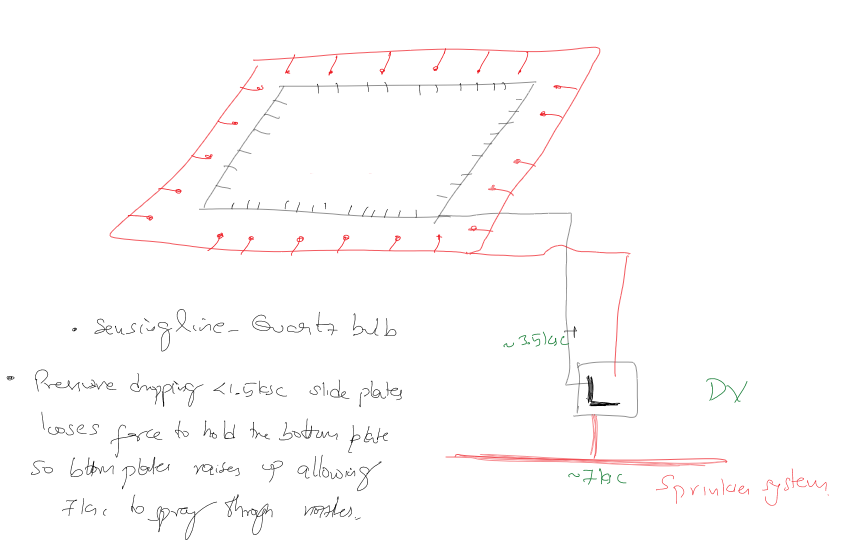 • Sensing line - Quartz bulb
~3.5ksc
• Pressure dropping <1.5ksc slide plates
looses force to hold the bottom plate
so bttm plates raises up allowing
7ksc to spray through nozzles.
DV
~7ksc
Sprinkler system